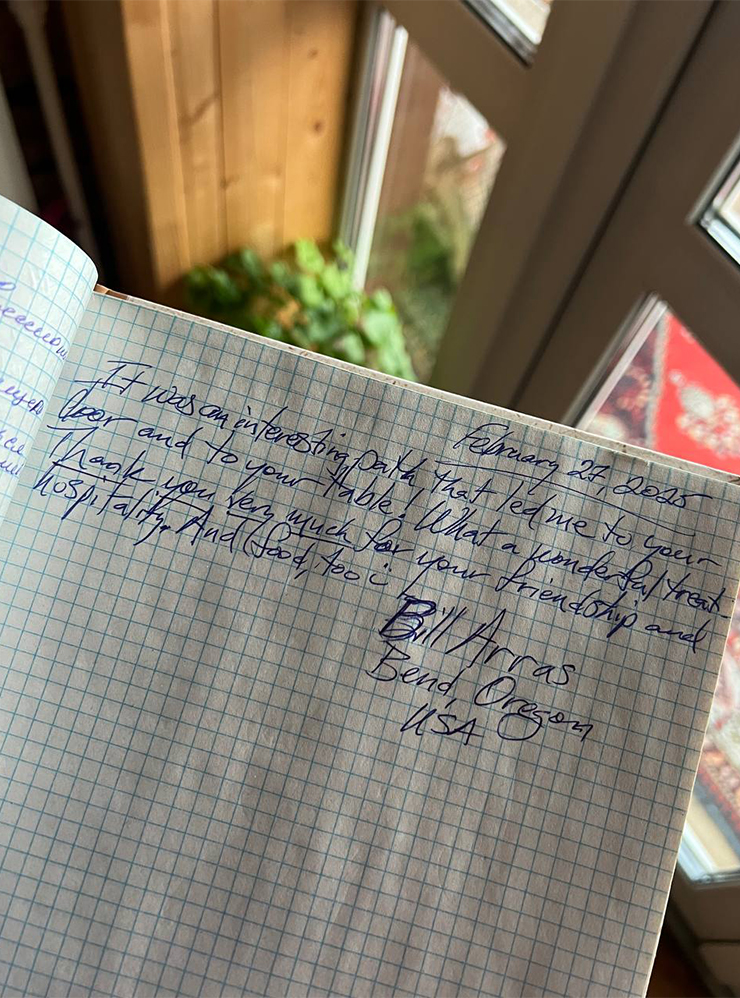 February 27, 2025
It was an interesting path that led me to your
door and to your table! What a wonderful treat.
Thank you very much for your friendship and
hospitality. And food, too!
Bill Arras
Bend, Oregon
USA